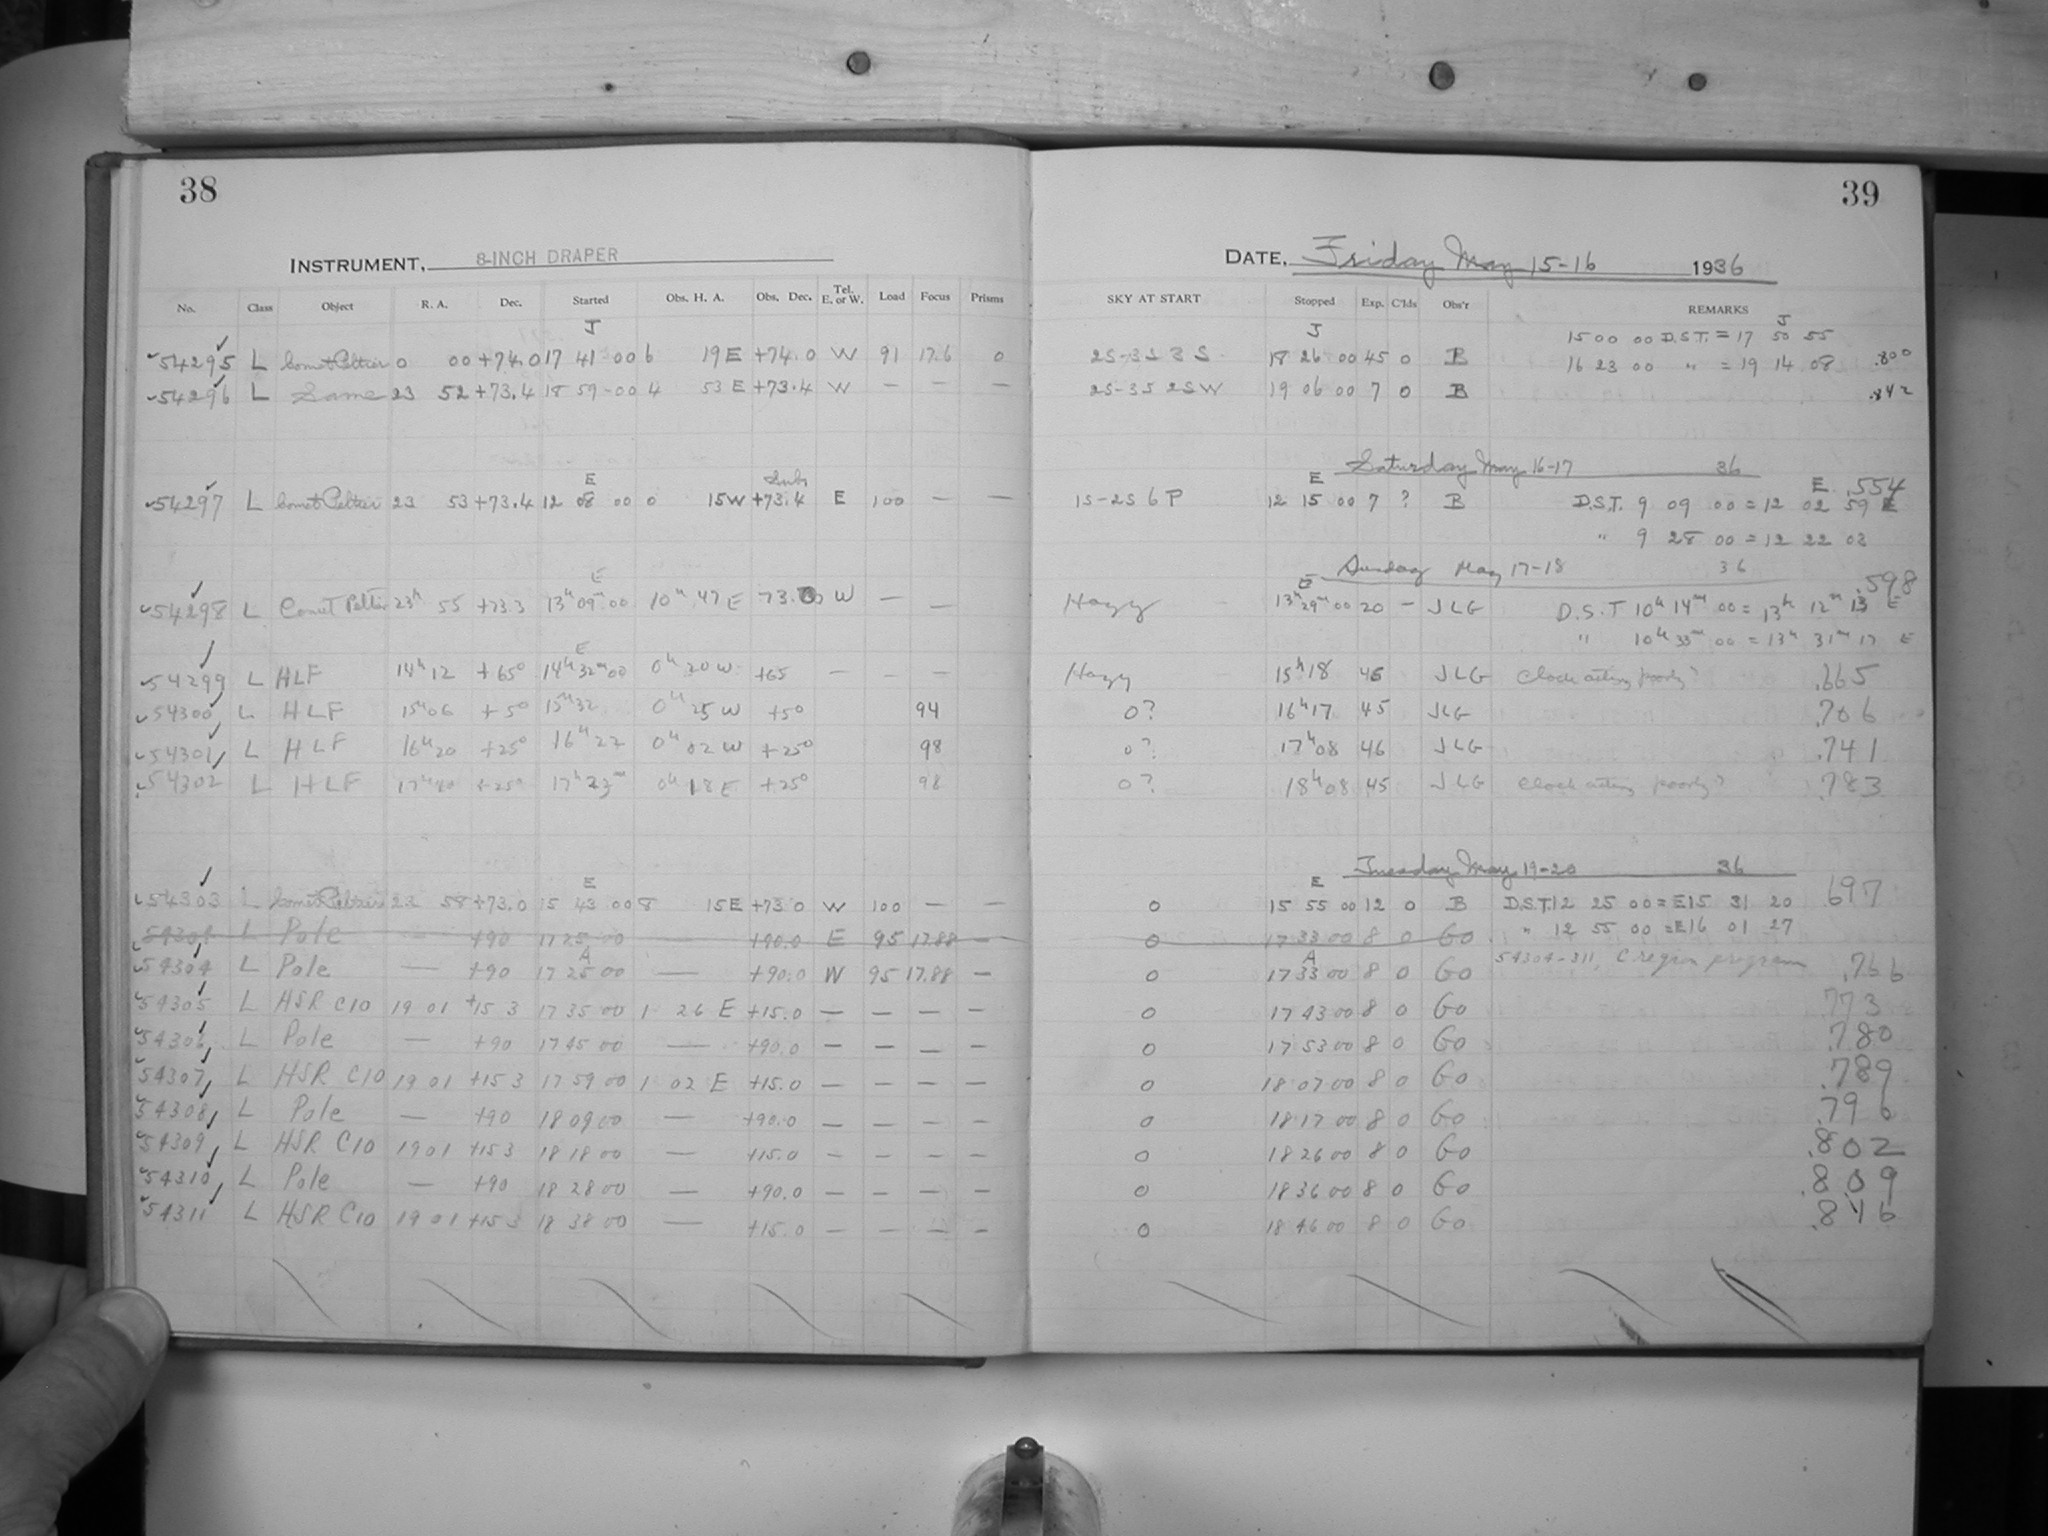 38
39
INSTRUMENT, 8-INCH DRAPER
DATE, Friday May 15-16 1936
No. Class Object R. A. Dec. Started Obs. H. A. Obs. Dec. Tel. E. or W. Load Focus Prisms SKY AT START Stopped Exp. C'lds Obs'r REMARKS
J J 15 00 00 D.S.T. = 17 50 55 J
54295 L Comet Peltier 0 00 +74.0 17 41 00 6 19 E +74.0 W 91 17.6 0 2S-3S 3 S 18 26 00 45 0 B 16 23 00 " = 19 14 08 .800
54296 L Same 23 52 +73.4 18 59-00 4 53 E +73.4 W — — — 2S-3S 2SW 19 06 00 7 0 B .842
Saturday May 16-17 36
E E E .554
54297 L Comet Peltier 23 53 +73.4 12 08 00 0 15W +73.4 E 100 — — 1S-2S 6 P 12 15 00 7 ? B D.S.T. 9 09 00 = 12 02 59 E
" 9 28 00 = 12 22 02
Sunday May 17-18 36
E E .598
54298 L Comet Peltier 23h 55 +73.3 13h 09m 00 10h 47 E 73. W — — Hazy 13h 29m 00 20 — JLG D.S.T 10h 14m 00 = 13h 12m 13 E
" 10h 33m 00 = 13h 31m 17 E
E
54299 L HLF 14h 12 +65° 14h 32m 00 0h 20 W +65 — — — Hazy 15h 18 46 JLG Clock acting poorly? .665
54300 L HLF 15h 06 +5° 15h 32 0h 25 W +5° 94 0? 16h 17 45 JLG .706
54301 L HLF 16h 20 +25° 16h 22 0h 02 W +25° 98 0? 17h 08 46 JLG .741
54302 L HLF 17h 40 +25° 17h 23m 0h 18 E +25° 98 0? 18h 08 45 JLG Clock acting poorly? .783
Tuesday May 19-20 36
E E
54303 L Comet Peltier 23 58 +73.0 15 43 00 8 15 E +73.0 W 100 — — 0 15 55 00 12 0 B D.S.T. 12 25 00 = E15 31 20 697
54304 L Pole — +90 17 25 00 — +90.0 E 95 17.88 — 0 17 33 00 8 0 Go " 12 55 00 = E16 01 27
A A
54304 L Pole — +90 17 25 00 — +90.0 W 95 17.88 — 0 17 33 00 8 0 Go 54304-311, C region program .766
54305 L HSR C10 19 01 +15 3 17 35 00 1 26 E +15.0 — — — — 0 17 43 00 8 0 Go .773
54306 L Pole — +90 17 45 00 — +90.0 — — — — 0 17 53 00 8 0 Go .780
54307 L HSR C10 19 01 +15 3 17 59 00 1 02 E +15.0 — — — — 0 18 07 00 8 0 Go .789
54308 L Pole — +90 18 09 00 — +90.0 — — — — 0 18 17 00 8 0 Go .796
54309 L HSR C10 19 01 +15 3 18 18 00 — +15.0 — — — — 0 18 26 00 8 0 Go .802
54310 L Pole — +90 18 28 00 — +90.0 — — — — 0 18 36 00 8 0 Go .809
54311 L HSR C10 19 01 +15 3 18 38 00 — +15.0 — — — — 0 18 46 00 8 0 Go .816